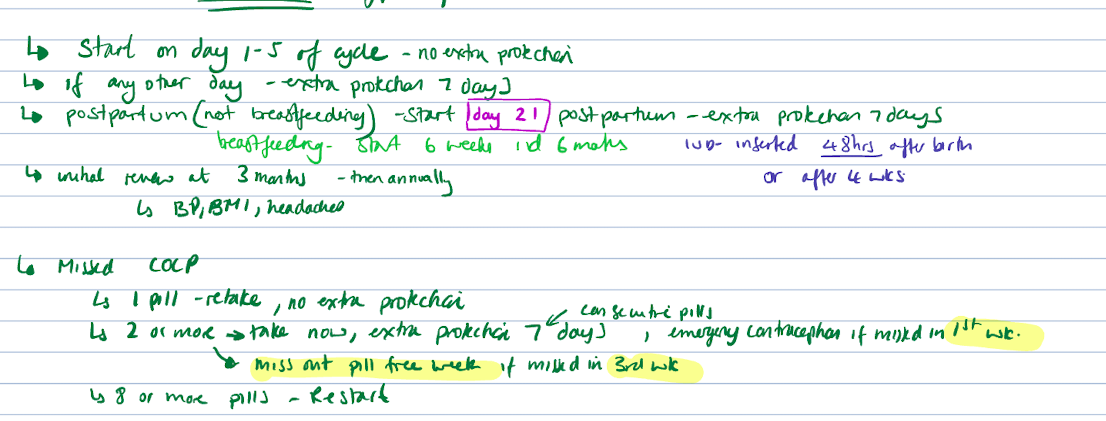 ↳ Start on day 1-5 of cycle - no extra protection
↳ if any other day - extra protection 7 days
↳ postpartum (not breastfeeding) - start day 21 postpartum - extra protection 7 days
breastfeeding - start 6 weeks 6 months
IUD - inserted 48hrs after birth
or after 4 wks
↳ initial review at 3 months - then annually
↳ BP, BMI, headaches
↳ Missed COCP
↳ 1 pill - retake, no extra protection
consecutive pills
↳ 2 or more → take now, extra protection 7 days, emergency contraception if missed in 1st wk.
↳ miss out pill free week if missed in 3rd wk
↳ 8 or more pills - Restart